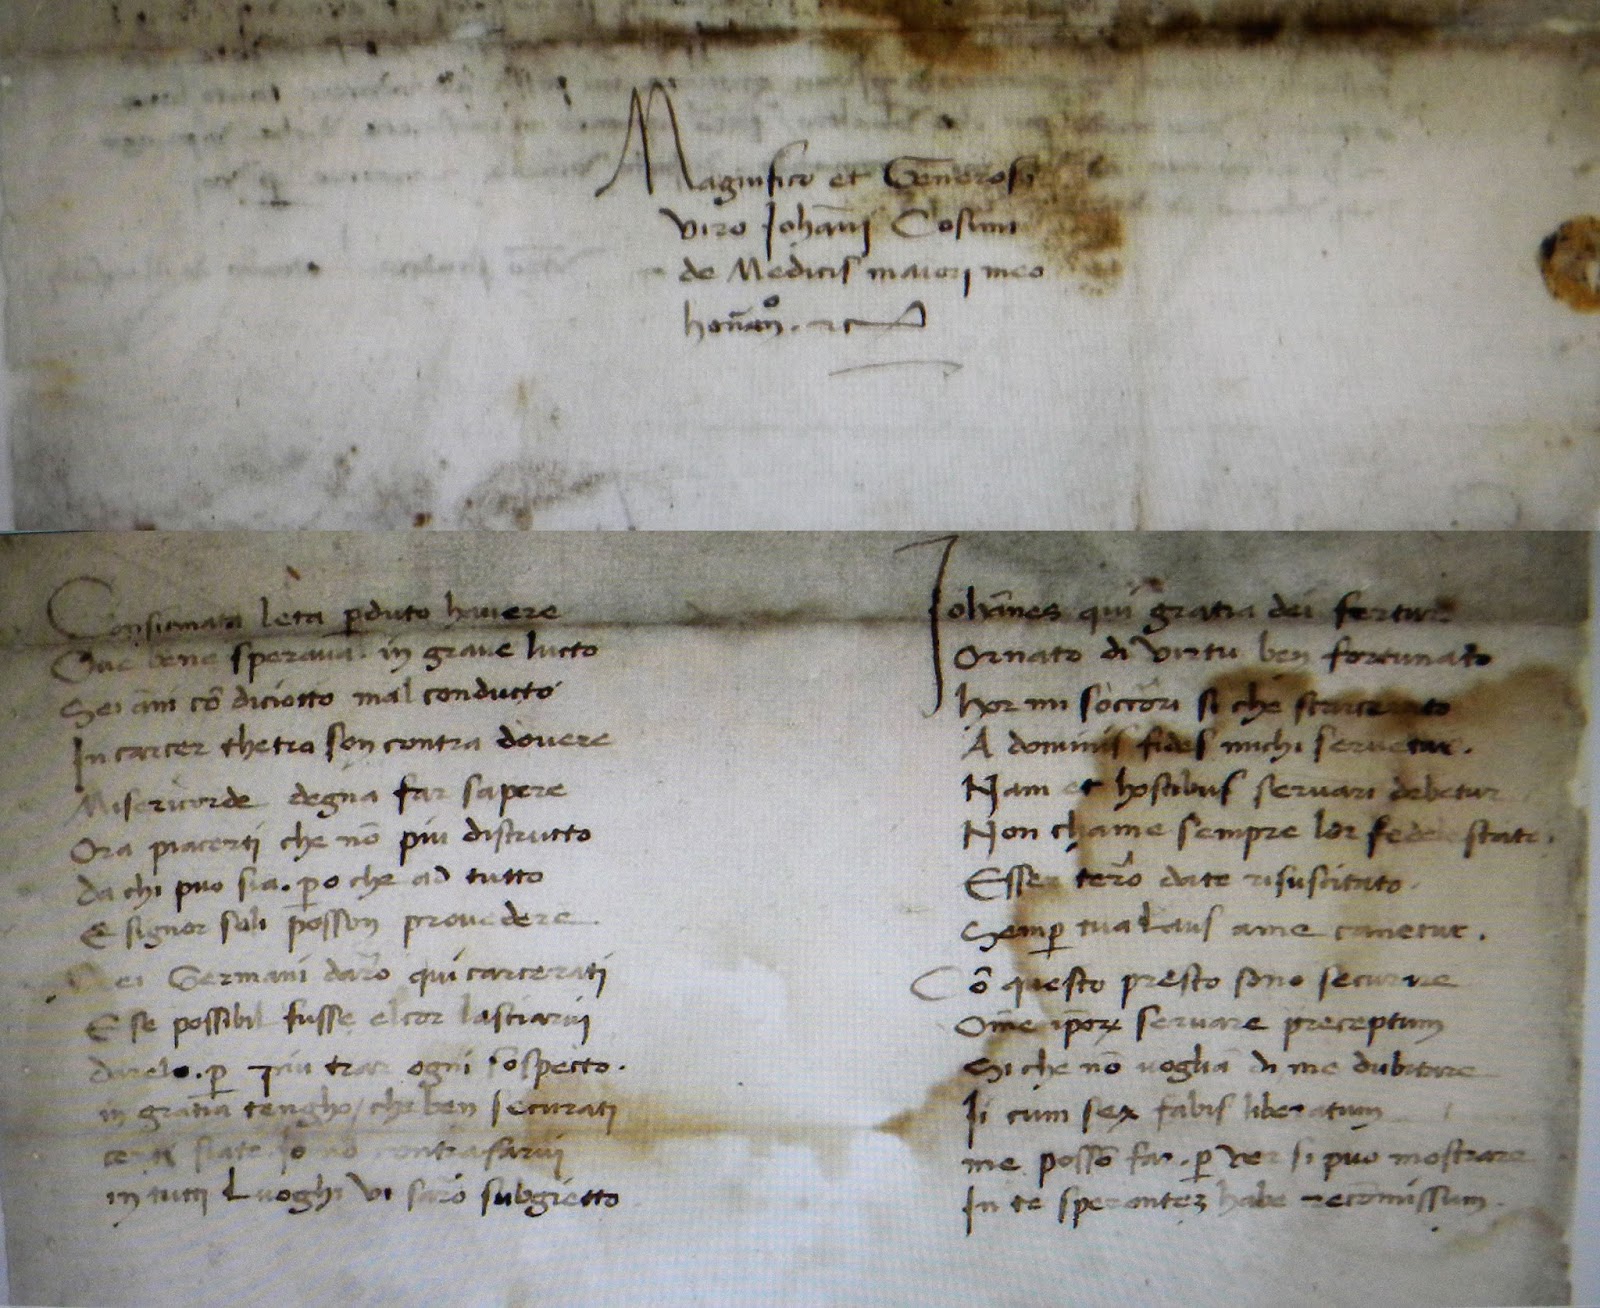 Magnifico et Generosi
viro Johāni Cosimi
de Medicis maiori meo
honañ.º etc
Consumata leta ꝑduto havere
Che bene sperava. in grave lucto
Sei āni cō diciotto mal conducto
In carcer thetro son contra dovere
Misericorde degna far sapere
Ora piacerti che nō piu distrutto
da chi puo sia. ꝑo che ad tutto
E signor soli posson provedere
Dei Germani darō qui carcerati
E se possibil fusse el cor lasciarvi
darelo. ꝑ piu trar ogni sospecto.
in gratia tengho / che ben securati
certi siate Io nō contrafarvi
in tutti Luoghi vi sarō subgietto
Johānes qui gratia dei fertur
Ornato di virtu ben fortunato
hor mi soccori si che scarcerato
A dominis fides michi servetur.
Nam et hostibus servari debetur
Non chame sempre lor fedele state.
Esser terrō da te risuscitato.
Semꝑ tua Laus a me canetur.
Cō questo presto sono securare
Om̄e ip̄oꝝ servare preceptum
Si che nō vogliā di me dubitare
Ii cum sex fabis liberatum
me possō far. ꝑ ver si puo mostrare
In te sperantez habe recōmissum.